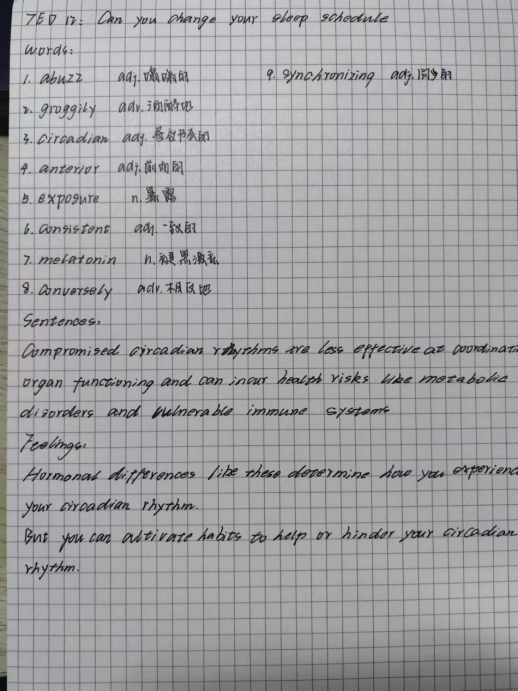 TED 12: Can you change your sleep schedule
Words:
1. abuzz adj. 嗡嗡的
9. synchronizing adj. 同步的
2. groggily adv. 酒醉地
3. circadian adj. 昼夜节奏的
4. anterior adj. 前面的
5. exposure n. 暴露
6. consistent adj. 一致的
7. melatonin n. 褪黑激素
8. conversely adv. 相反地
Sentences:
Compromised circadian rhythms are less effective at coordinati
organ functioning and can incur health risks like metabolic
disorders and vulnerable immune systems
Feelings:
Hormonal differences like these determine how you experienc
your circadian rhythm.
But you can cultivate habits to help or hinder your circadian
rhythm.